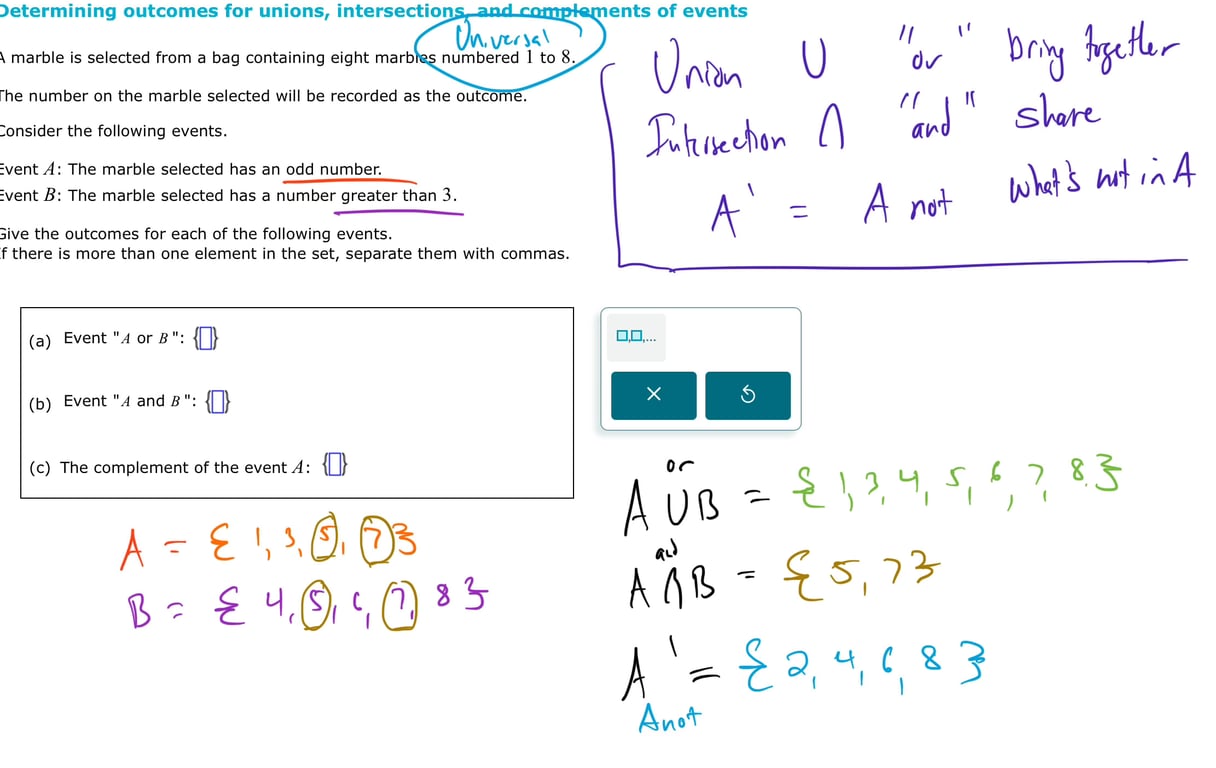 Determining outcomes for unions, intersections, and complements of events
Universal
A marble is selected from a bag containing eight marbles numbered 1 to 8.
The number on the marble selected will be recorded as the outcome.
Consider the following events.
Event A: The marble selected has an odd number.
Event B: The marble selected has a number greater than 3.
Give the outcomes for each of the following events.
If there is more than one element in the set, separate them with commas.
Union ∪ "or" bring together
Intersection ∩ "and" share
A' = A not What's not in A
(a) Event "A or B": {}
(b) Event "A and B": {}
(c) The complement of the event A: {}
□,□,...
A = {1, 3, 5, 7}
B = {4, 5, 6, 7, 8}
or
A ∪ B = {1, 3, 4, 5, 6, 7, 8}
and
A ∩ B = {5, 7}
A' = {2, 4, 6, 8}
A not